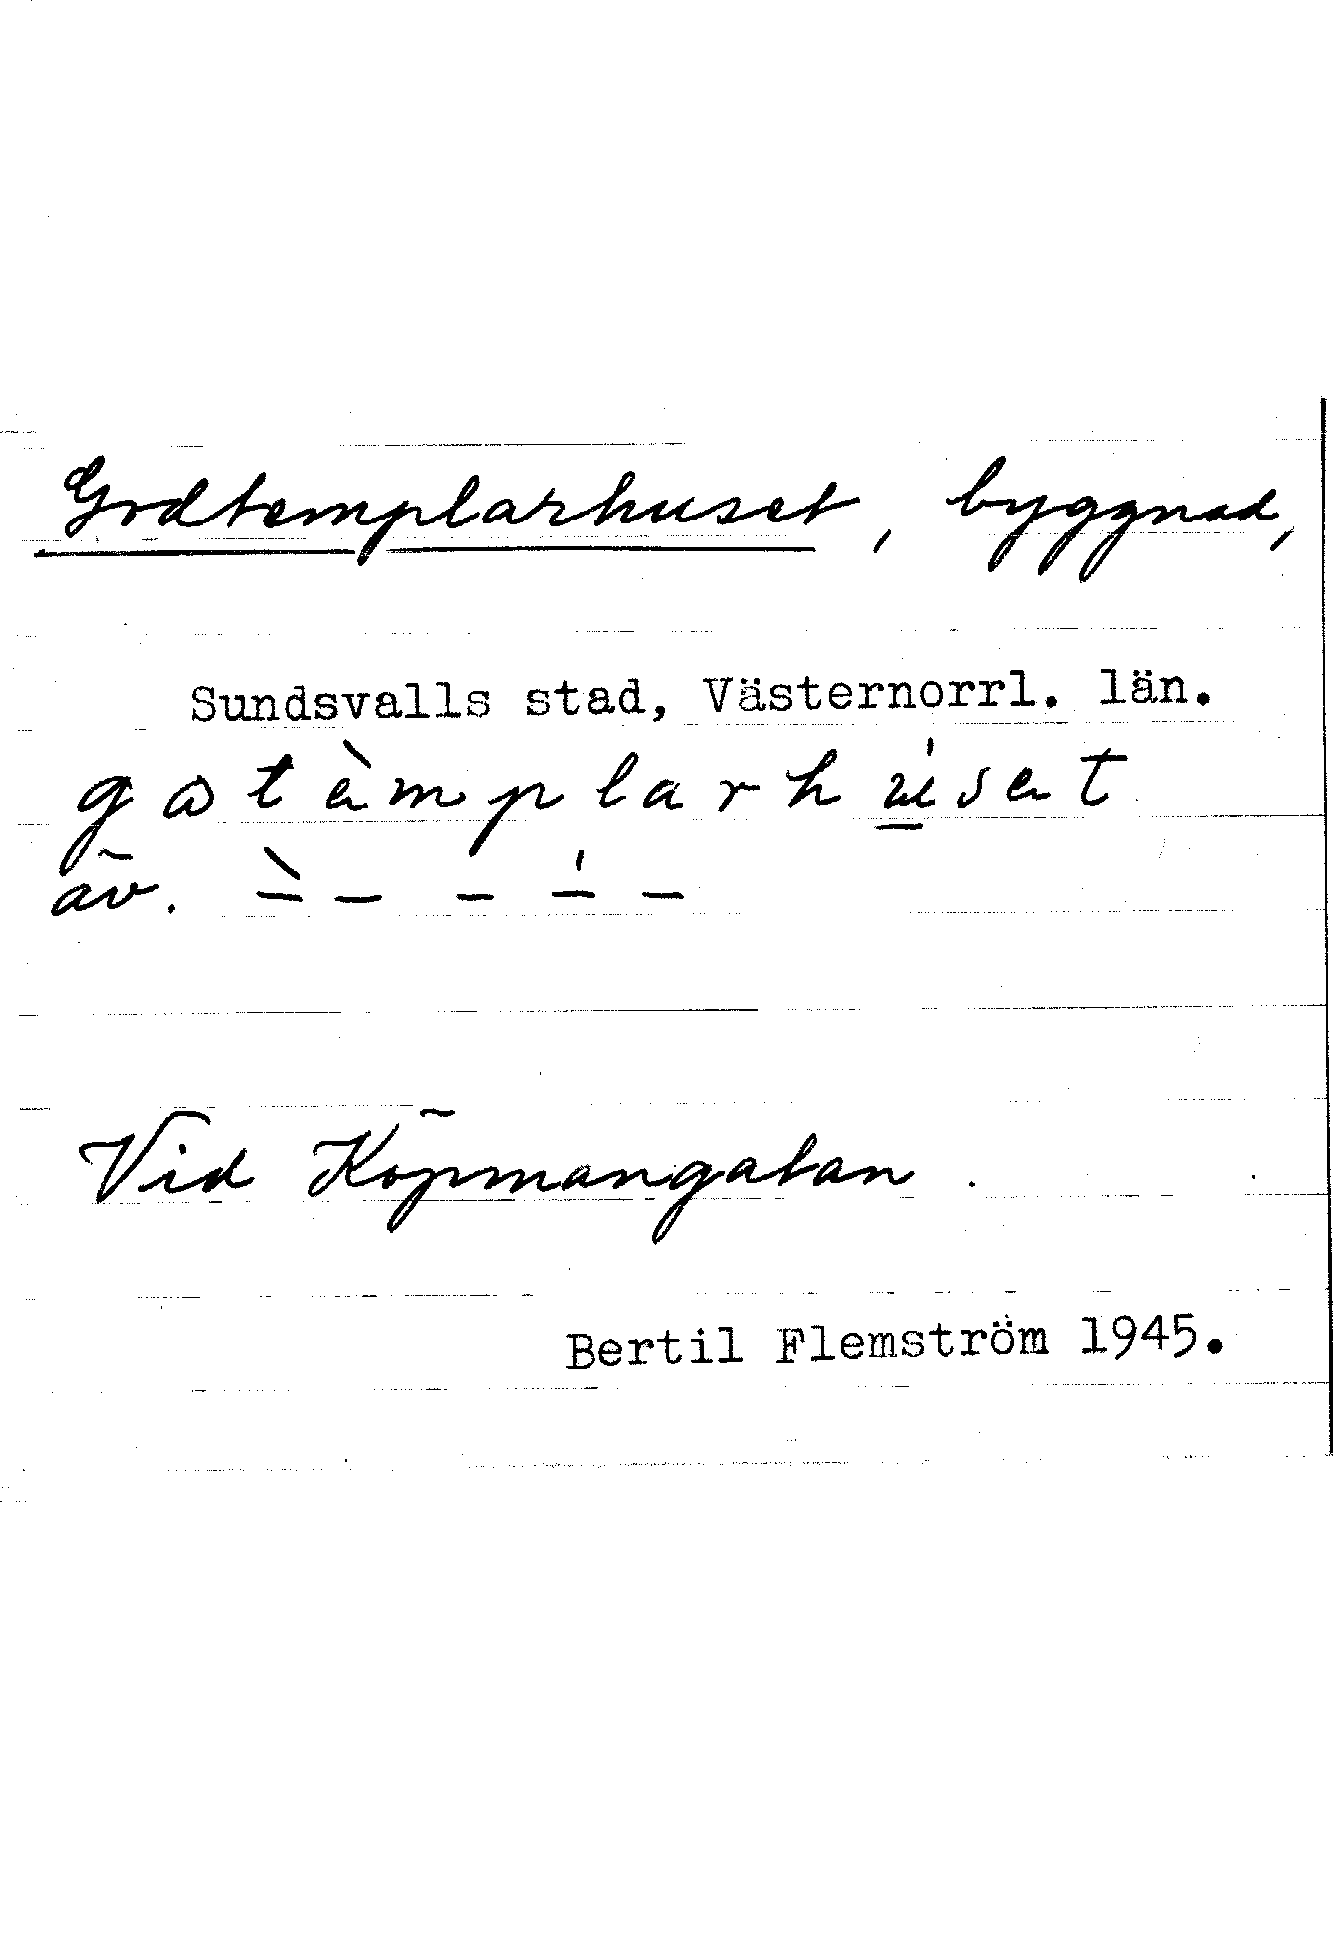 Godtemplarhuset, byggnad,
Sundsvalls stad, Västernorrl. län.
gωtèmplarhu̲̍set
äv. –̀ – – –̍ –
Vid Köpmangatan.
Bertil Flemström 1945.